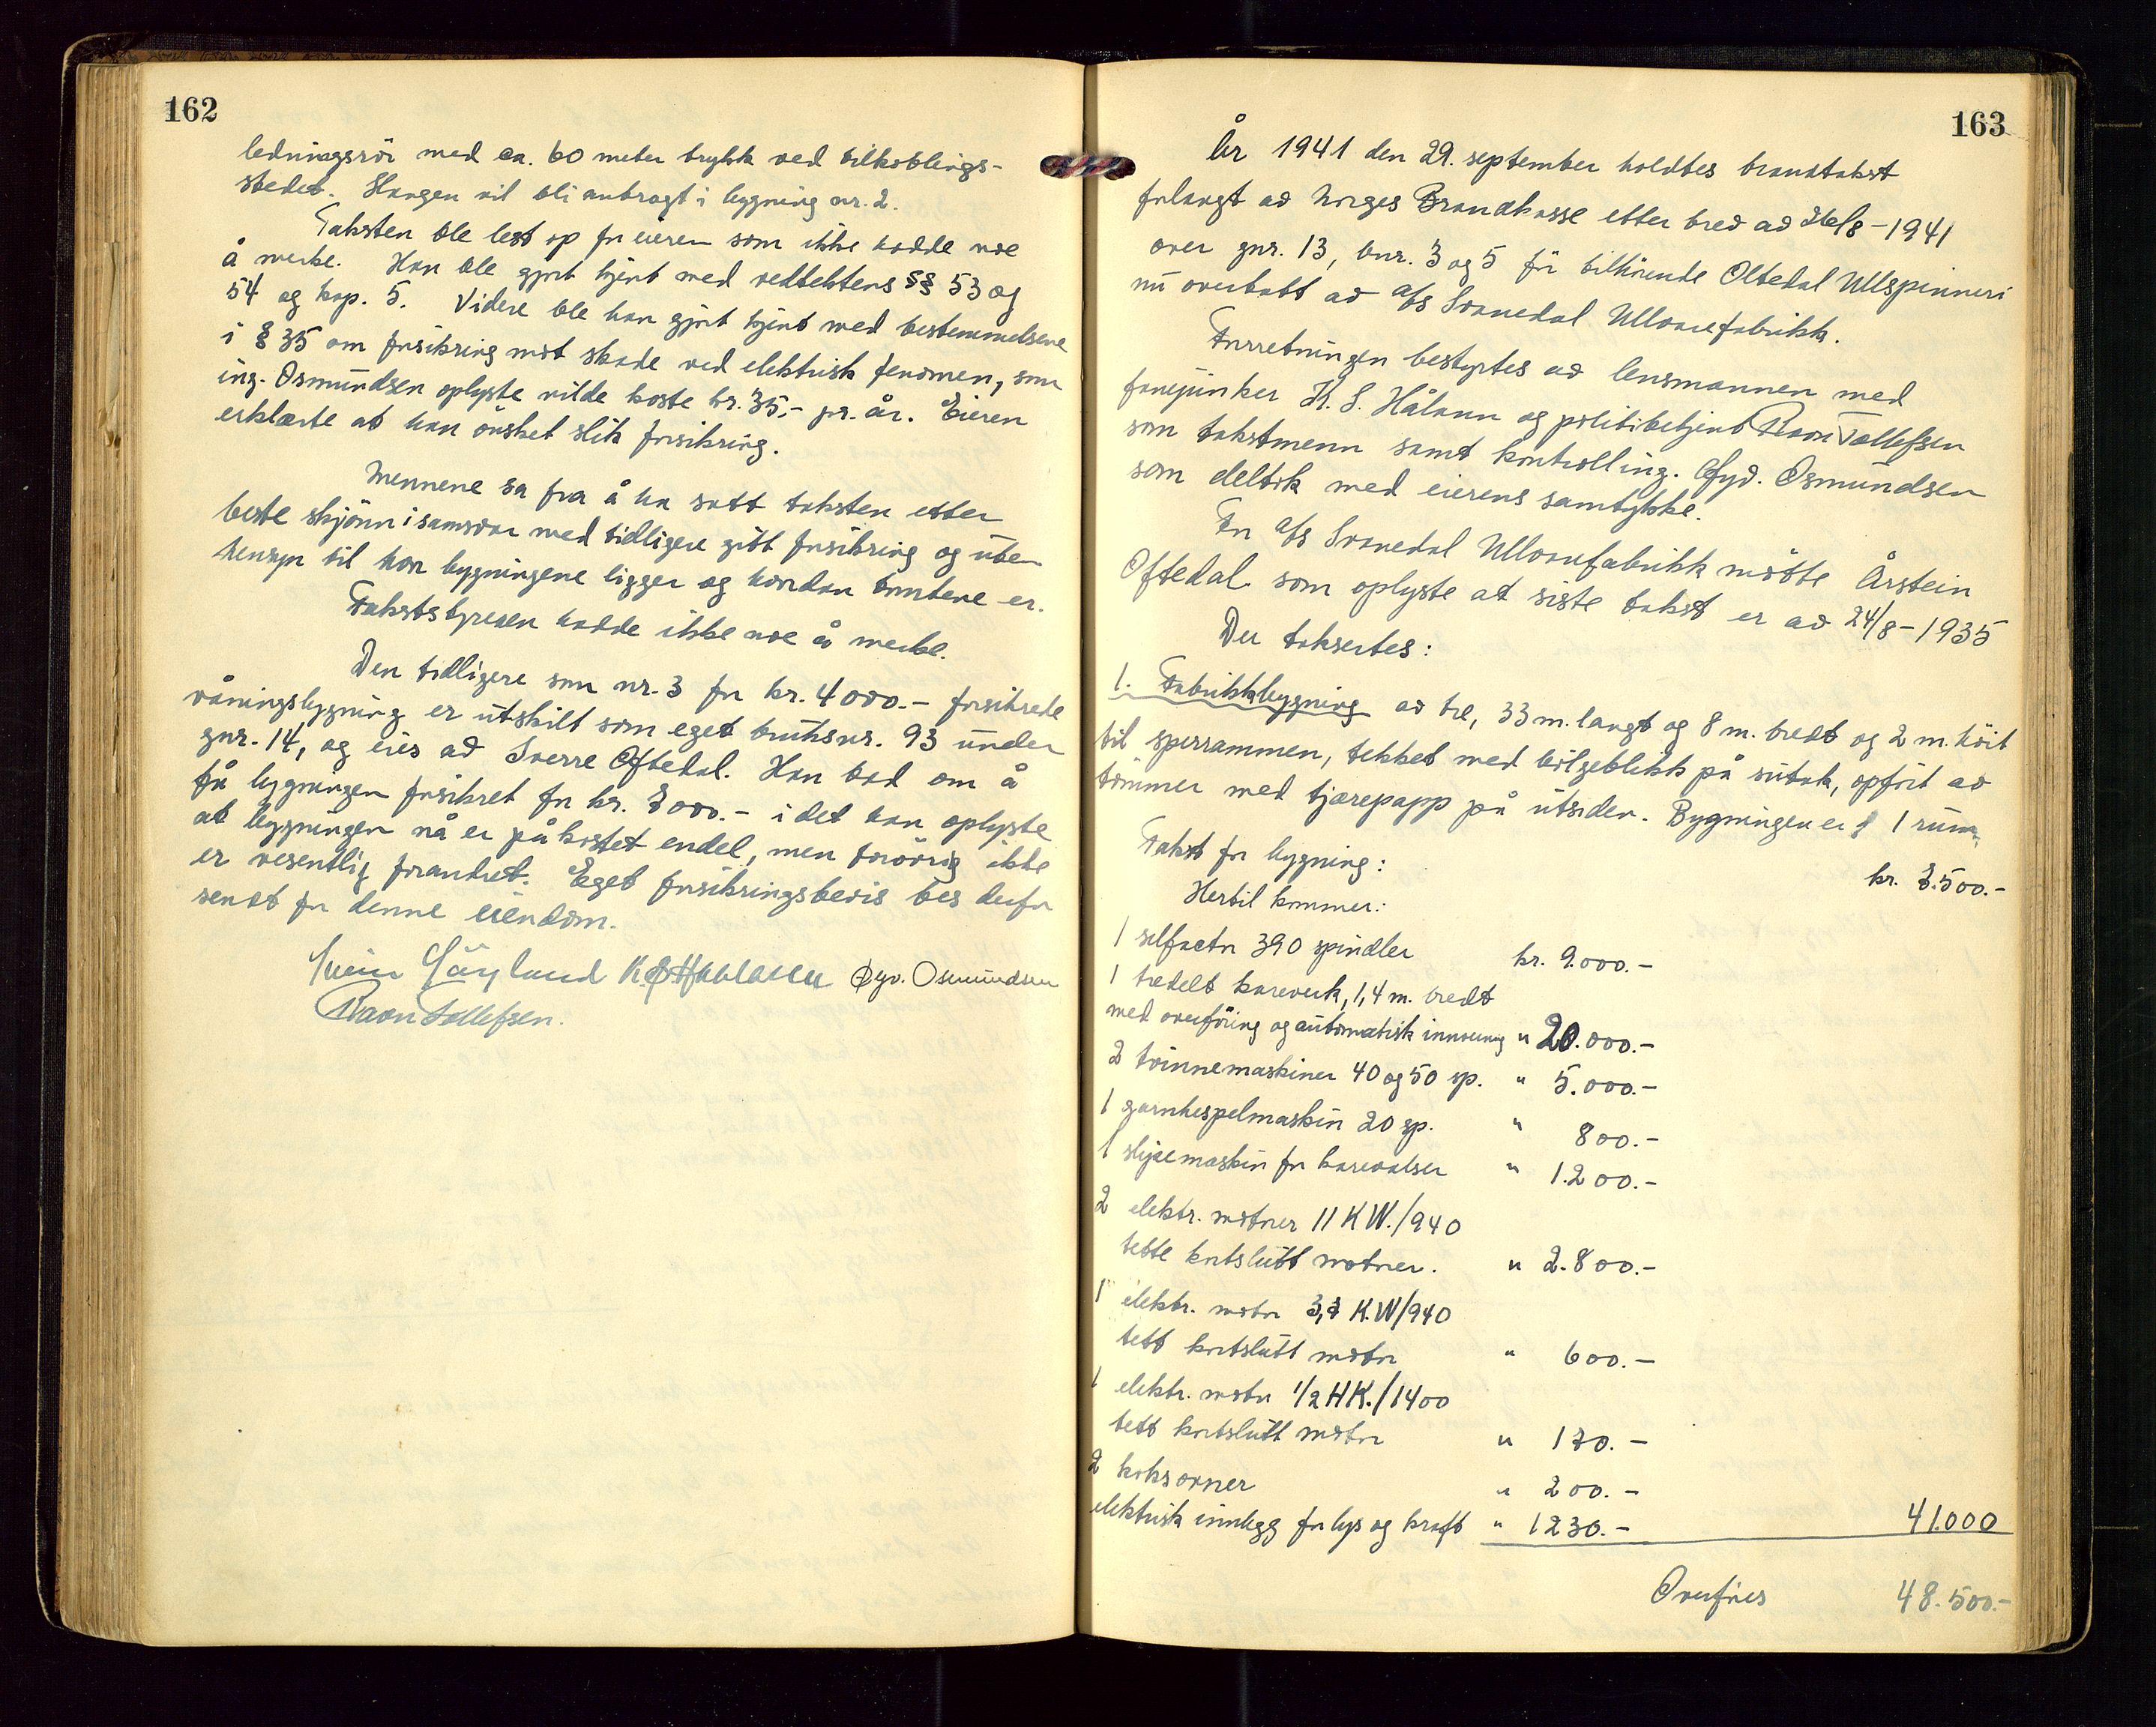 162
ledningsrör med ca. 60 meter trykk ved tilkoblings-
stedet. Slangen vil bli anbragt i bygning nr. 2.
Taksten ble lest op for eieren som ikke hadde noe
å merke. Han ble gjort kjent med vedtektens §§ 53 og
54 og kap. 5. Videre ble han gjort kjent med bestemmelsene
i § 35 om forsikring mot skade ved elektrisk fenomen, som
ing. Osmundsen oplyste vilde koste kr. 35,- pr. år. Eieren
erklærte at han önsket slik forsikring.
Mennene sa fra å ha satt taksten etter
beste skjönn i samsvar med tidligere gitt forsikring og uten
hensyn til hvor bygningene ligger og hvordan tomtene er.
Takststyreren hadde ikke noe å merke.
Den tidligere som nr. 3 for kr. 4000.- forsikrede
våningsbygning er utskilt som eget bruksnr. 93 under
gnr. 14, og eies av Sverre Oftedal. Han bad om å
få bygningen forsikret for kr. 7000.- idet han oplyste
at bygningen nå er påkostet endel, men forövrig ikke
er vesentlig forandret. Eget forsikringsbevis bes derfor
sendt for denne eiendom.
Svein Göyland K. S. Haaland Gyv. Osmundsen
Raon Tollefsen.
163
År 1941 den 29. september holdtes branntakst
forlangt av Norges Brandkasse etter brev av 26/8-1941
over gnr. 13, bnr. 3 og 5 för tilhörende Oltedal Ullspinneri
nu overtatt av A/s Svanedal Ullvarefabrikk.
Forretningen bestyrtes av lensmannen med
fanejunker K. S. Håland og politibetjent Raon Tollefsen
som takstmenn samt kontrolling. Gyv. Osmundsen
som deltok med eierens samtykke.
For A/s Svanedal Ullvarefabrikk mötte Årstein
Oftedal som oplyste at siste takst er av 24/8-1935
Der taksertes:
1. Fabrikkbygning av tre, 33 m. langt og 8 m. bredt og 2 m. höit
til sperrammen, tekket med bölgeblikk på sutak, opfört av
tömmer med tjærepapp på utsiden. Bygningen er i 1 rum.
Takst for bygning: kr. 7.500.-
Hertil kommer:
1 selfactor 390 spindler kr. 9.000.-
1 tredelt kareverk, 1,4 m. bredt
med overföring og automatisk innveiing " 20.000.-
2 tvinnemaskiner 40 og 50 sp. " 5.000.-
1 garnhespelmaskin 20 sp. " 800.-
1 slipemaskin for karevalser " 1.200.-
2 elektr. motorer 11 KW./940
tette kortslutt motorer. " 2.800.-
1 elektr. motor 3,7 K.W/940
tett kortslutt motor " 600.-
1 elektr. motor 1/2 HK./1400
tett kortslutt motor " 170.-
2 koksovner " 200.-
elektrisk innlegg for lys og kraft " 1230.- 41.000
Overföres 48.500.-